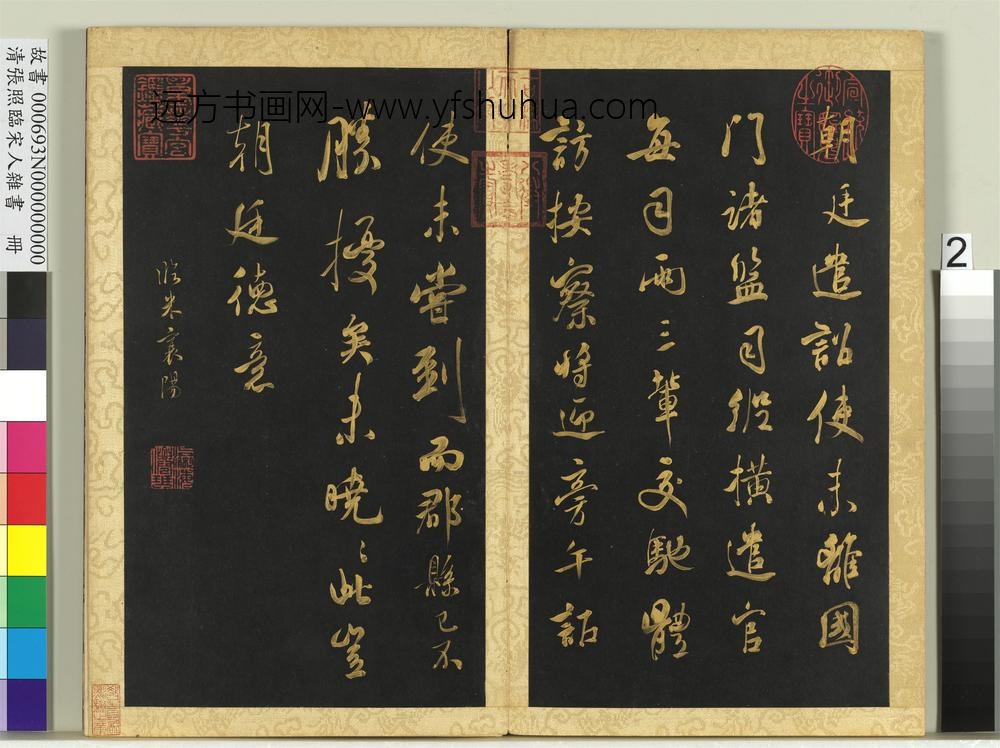 朝廷遣詔使未離國
門諸監司縱橫遣官
每司兩三輩交馳體
訪按察將迎旁午詔
使未嘗到而郡縣已不
勝擾矣未曉〻此豈
朝廷德意
臨米襄陽
故書 000693N000000000
清張照臨宋人雜書 冊
2
远方书画网-www.yfshuhua.com